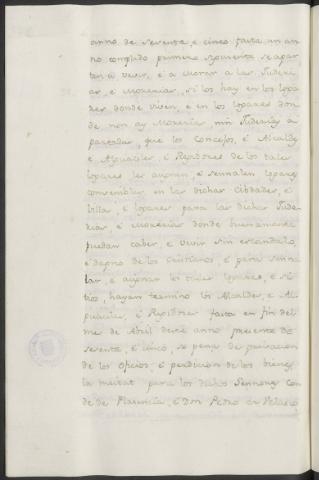 anno de setenta, é cinco fasta un an-
no complido primero siguiente se apar-
ten á vevir, é á morar á las Juderi-
as, é Morerias, si los hay en los loga-
res donde viven, é en los logares don
de non ay Moreria nin Juderia a-
partada, que los Concejos, é Alcaldes
é Alguaciles, é Regidores de los tales
logares les asignen, é sennalen logares
convenibles en las dichas Cibdades, é
Villas, é logares para las dichas Jude-
rias, é Morerias donde buenamente
puedan caber, é vivir sin escandalo,
é dapno de los Cristianos, é para senna-
lar, é asignar los tales logares, é si-
tios, hayan termino los Alcaldes, é Al-
guaciles, é Regidores fasta en fin del
mes de Abril deste anno presente de
setenta, é cinco, so pena de privacion
de los oficios, é perdicion de los bienes
la meitat para los dichos Sennores Con
de de Plasencia, é Don Pedro de Velasco